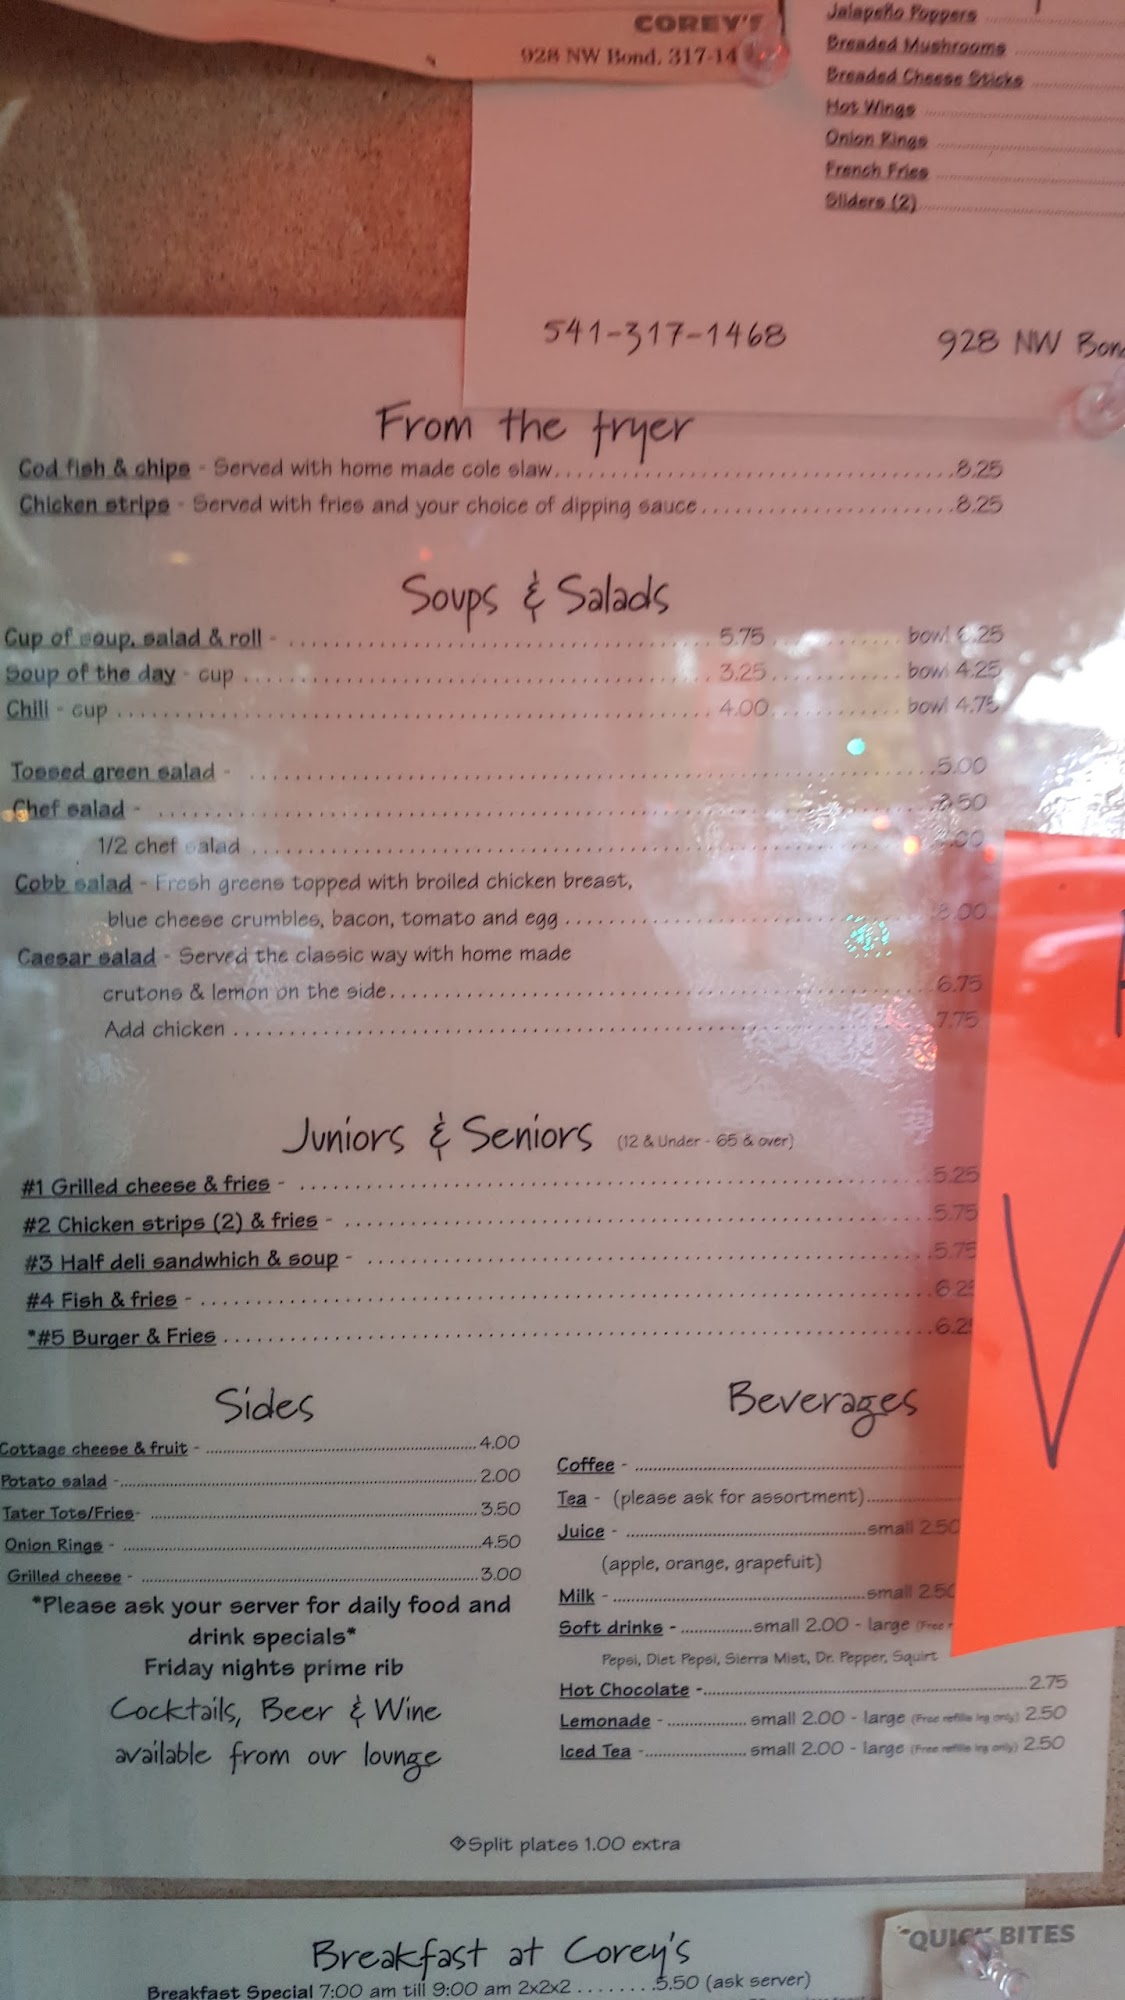 COREY'S
928 NW Bond, 317-14
Jalapeño Poppers
Breaded Mushrooms
Breaded Cheese Sticks
Hot Wings
Onion Rings
French Fries
Sliders (2)
541-317-1468 928 NW Bond
From the fryer
Cod fish & chips - Served with home made cole slaw 8.25
Chicken strips - Served with fries and your choice of dipping sauce 8.25
Soups & Salads
Cup of soup, salad & roll - 5.75 bowl 6.25
Soup of the day - cup 3.25 bowl 4.25
Chili - cup 4.00 bowl 4.75
Tossed green salad - 5.00
Chef salad -
1/2 chef salad
Cobb salad - Fresh greens topped with broiled chicken breast,
blue cheese crumbles, bacon, tomato and egg 8.00
Caesar salad - Served the classic way with home made
crutons & lemon on the side 6.75
Add chicken 7.75
Juniors & Seniors (12 & Under - 65 & over)
#1 Grilled cheese & fries - 5.25
#2 Chicken strips (2) & fries - 5.75
#3 Half deli sandwhich & soup - 5.75
#4 Fish & fries - 6.25
*#5 Burger & Fries 6.25
Sides
Cottage cheese & fruit - 4.00
Potato salad - 2.00
Tater Tots/Fries- 3.50
Onion Rings - 4.50
Grilled cheese - 3.00
*Please ask your server for daily food and
drink specials*
Friday nights prime rib
Cocktails, Beer & Wine
available from our lounge
Beverages
Coffee -
Tea - (please ask for assortment)
Juice - small 2.50
(apple, orange, grapefuit)
Milk - small 2.50
Soft drinks - small 2.00 - large (Free
Pepsi, Diet Pepsi, Sierra Mist, Dr. Pepper, Squirt
Hot Chocolate - 2.75
Lemonade - small 2.00 - large (Free refills lrg only) 2.50
Iced Tea - small 2.00 - large (Free refills lrg only) 2.50
Split plates 1.00 extra
Breakfast at Corey's
Breakfast Special 7:00 am till 9:00 am 2x2x2 5.50 (ask server)
"QUICK BITES
V